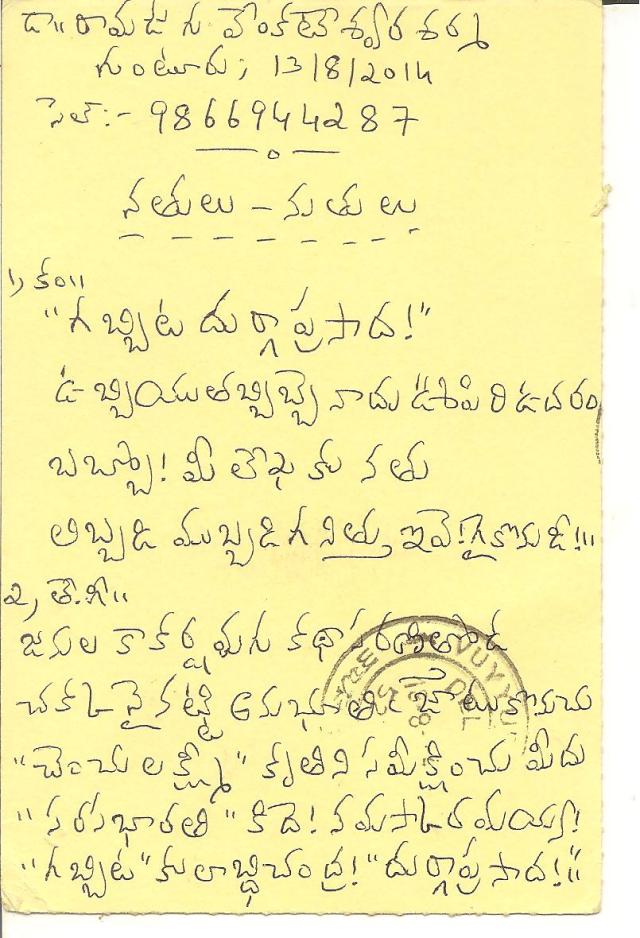 డా॥ రామడుగు వేంకటేశ్వర శర్మ
గుంటూరు; 13/8/2014
సెల్:- 9866944287
నతులు - నుతులు
1, కం॥
"గబ్బిట దుర్గాప్రసాద!"
ఉబ్బియు తబ్బిబ్బై నాదు ఊపిరి ఉదరం
బబ్బో! మీ లేఖకు నతు
లిబ్బడి ముబ్బడిగ నిత్తు ఇవె! గైకొనుడీ!"
2, తే.గీ॥
జనుల కాకర్షమగు కథా సరణితోడ
చక్కనైనట్టి అనుభూతి జాటుకొనుచు
"చెంచులక్ష్మి" కృతిని సమీక్షించు మీదు
"సరసభారతి" కిదె! నమస్కారమయ్య!
"గబ్బిట" కులాబ్ధిచంద్ర! "దుర్గాప్రసాద!"
VUYYUR